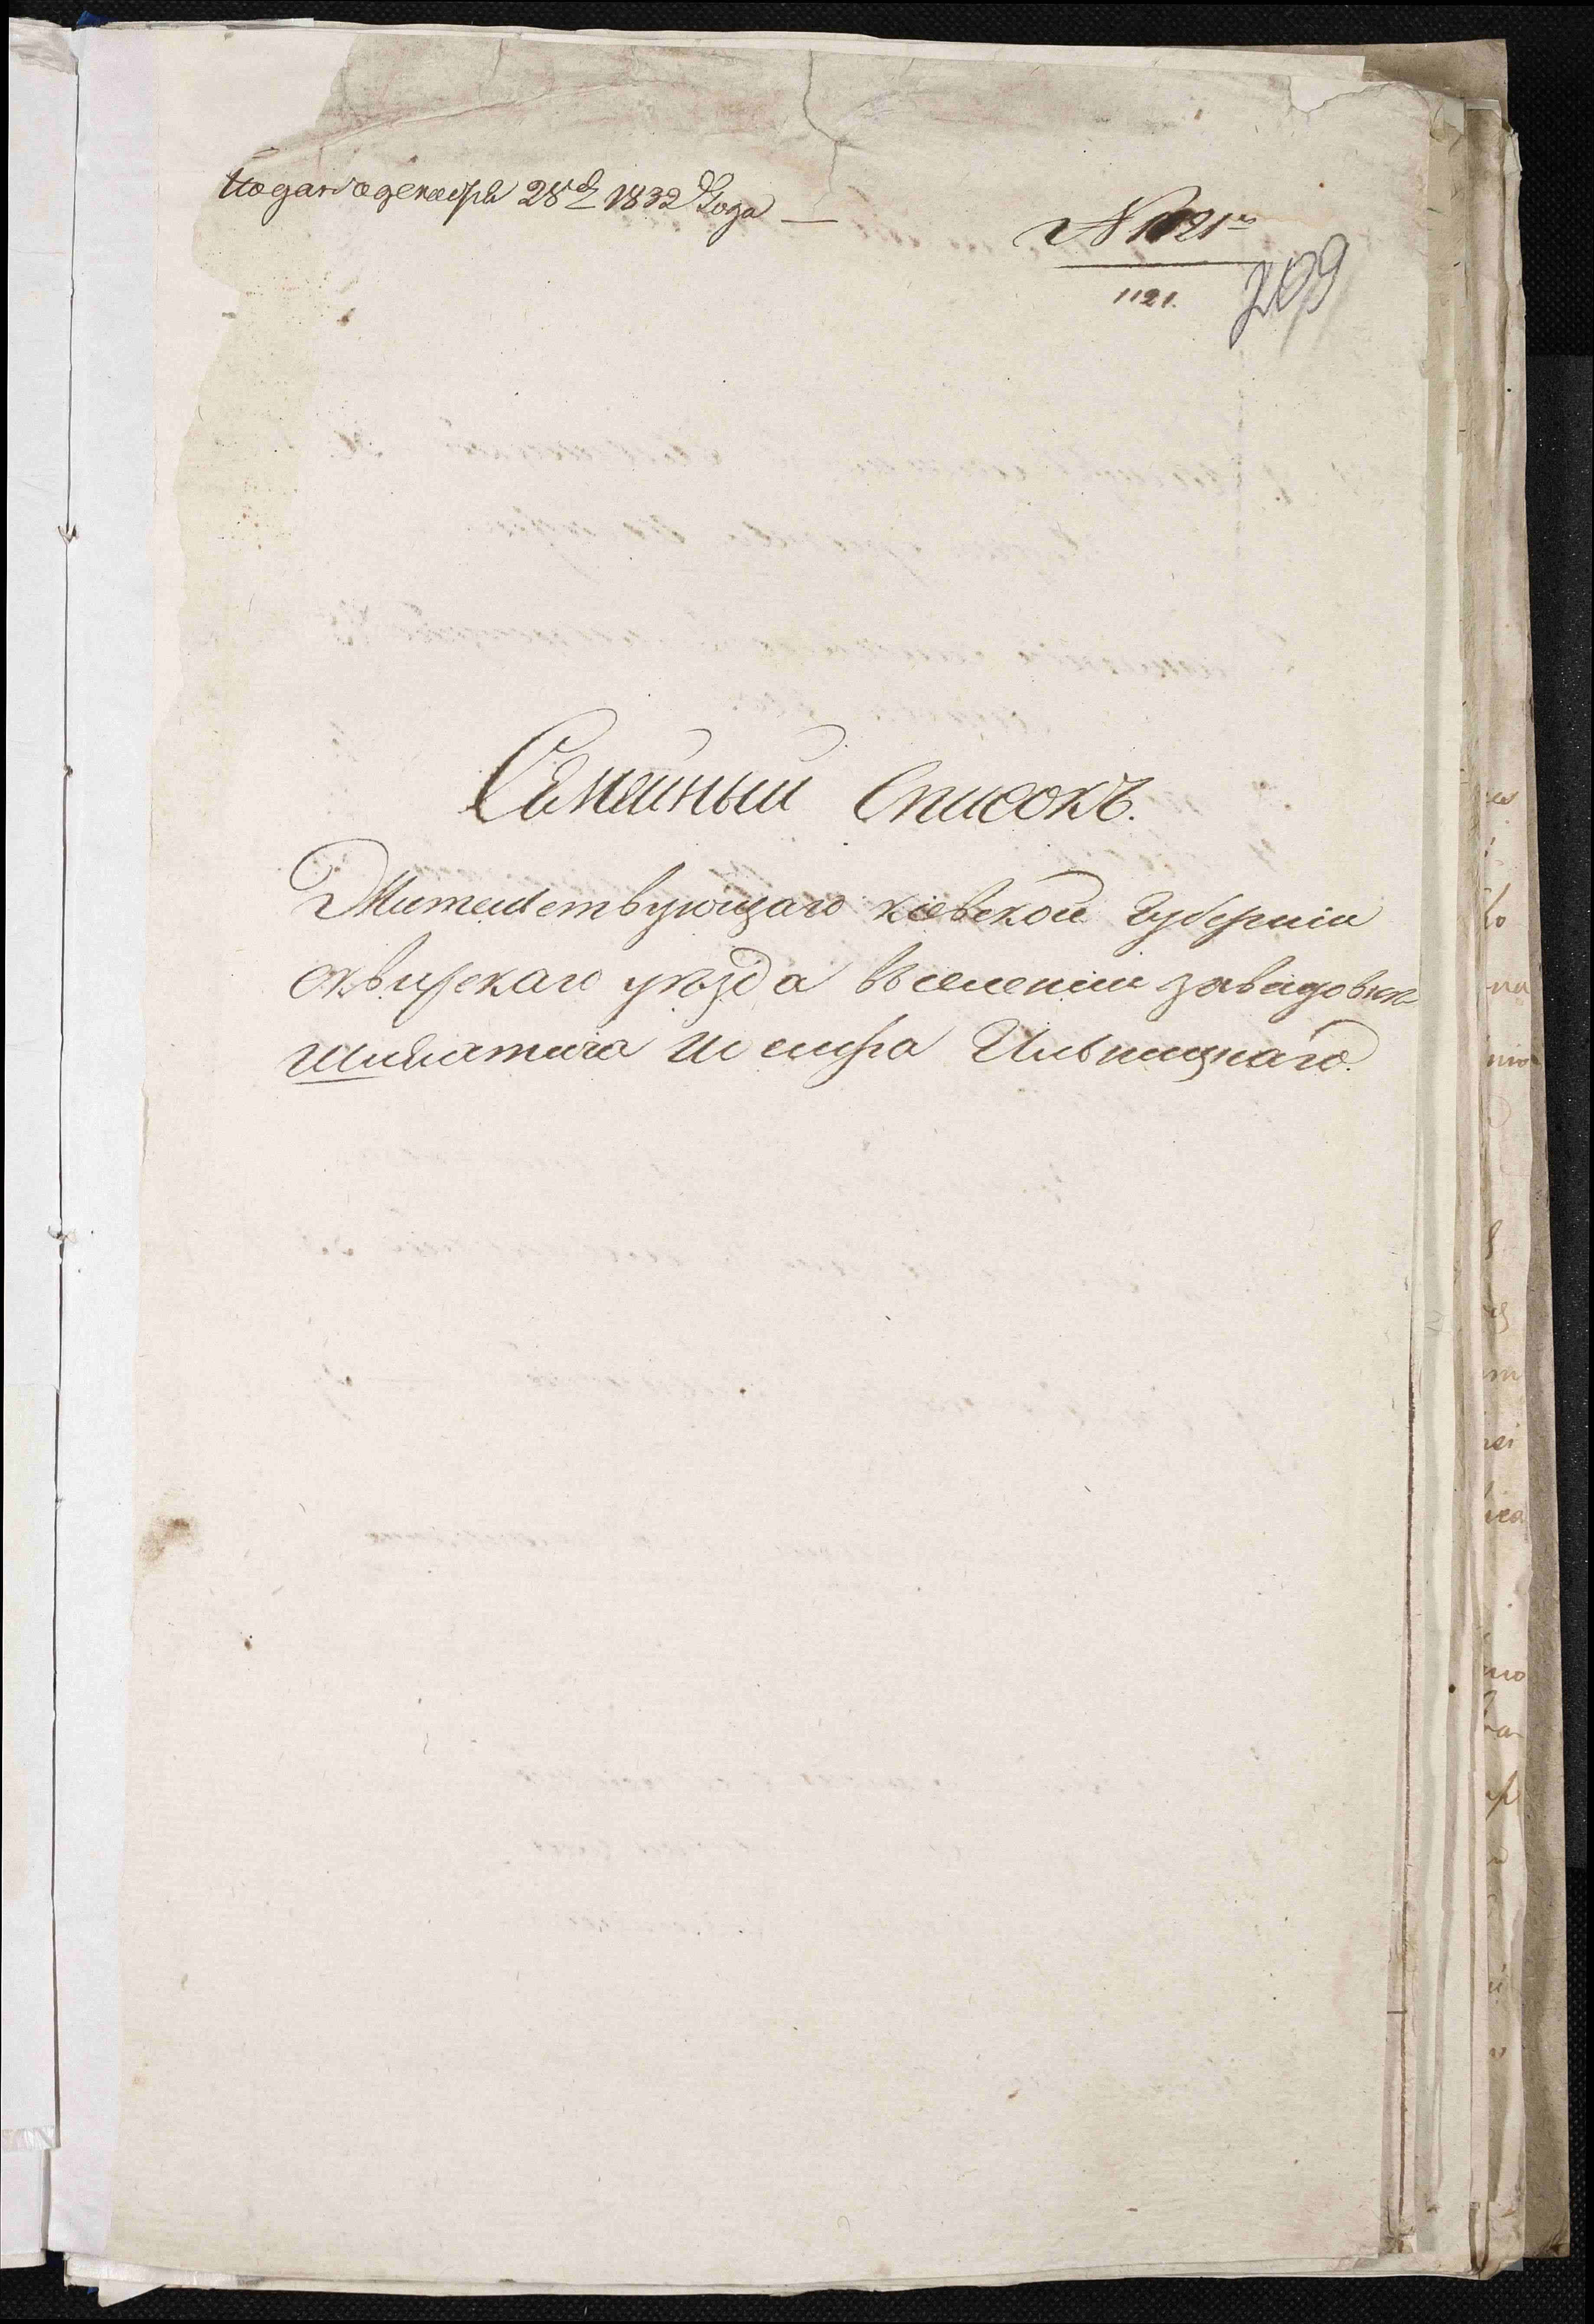 Подано декабря 28д. 1832 Года
N 1121
1121.
209
Семейный Списокъ.
Жительствующаго кіевской губерніи
сквирскаго уѣзда вселеніи завадовкѣ
шляхтича Иосифа Ильницкаго.